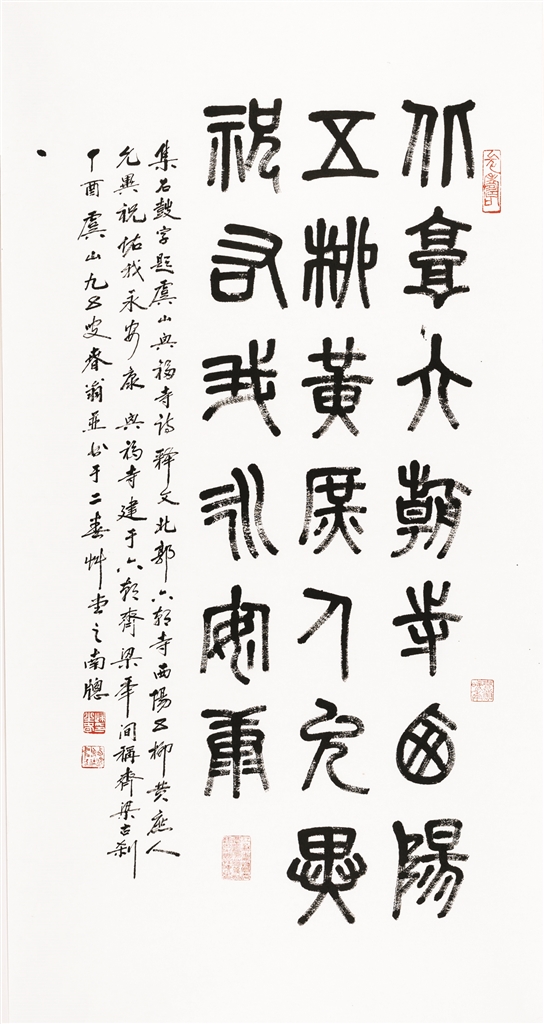 北郭六朝寺西陽
五柳黃庶人允異
祝右我永安康
集石鼓字題虞山興福寺詩釋文北郭六朝寺西陽五柳黃庶人
允異祝祐我永安康興福寺建于六朝齊梁年间稱齊梁古刹
丁酉虞山九五叟春翁並书于二春艸堂之南牕